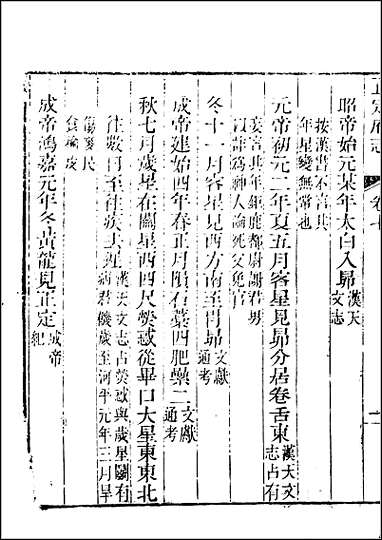 正定府志 卷七
昭帝始元某年太白入昴漢天文志
按漢書不言其
年星變無常也
元帝初元二年夏五月客星見昴分居卷舌東漢天文志占有
妄言其年鉅鹿都尉謝君男
詐為神人論死父免官
冬十一月客星見西方南至胃昴文獻通考
成帝建始四年春正月隕石藁四肥纍二文獻通考
秋七月歲星在關星西四尺熒惑從畢口大星東東北
往數日至往疾去遲漢天文志占熒惑與歲星鬭有病君饑歲至河平元年三月旱
傷麥民
食榆皮
成帝鴻嘉元年冬黃龍見正定成帝紀